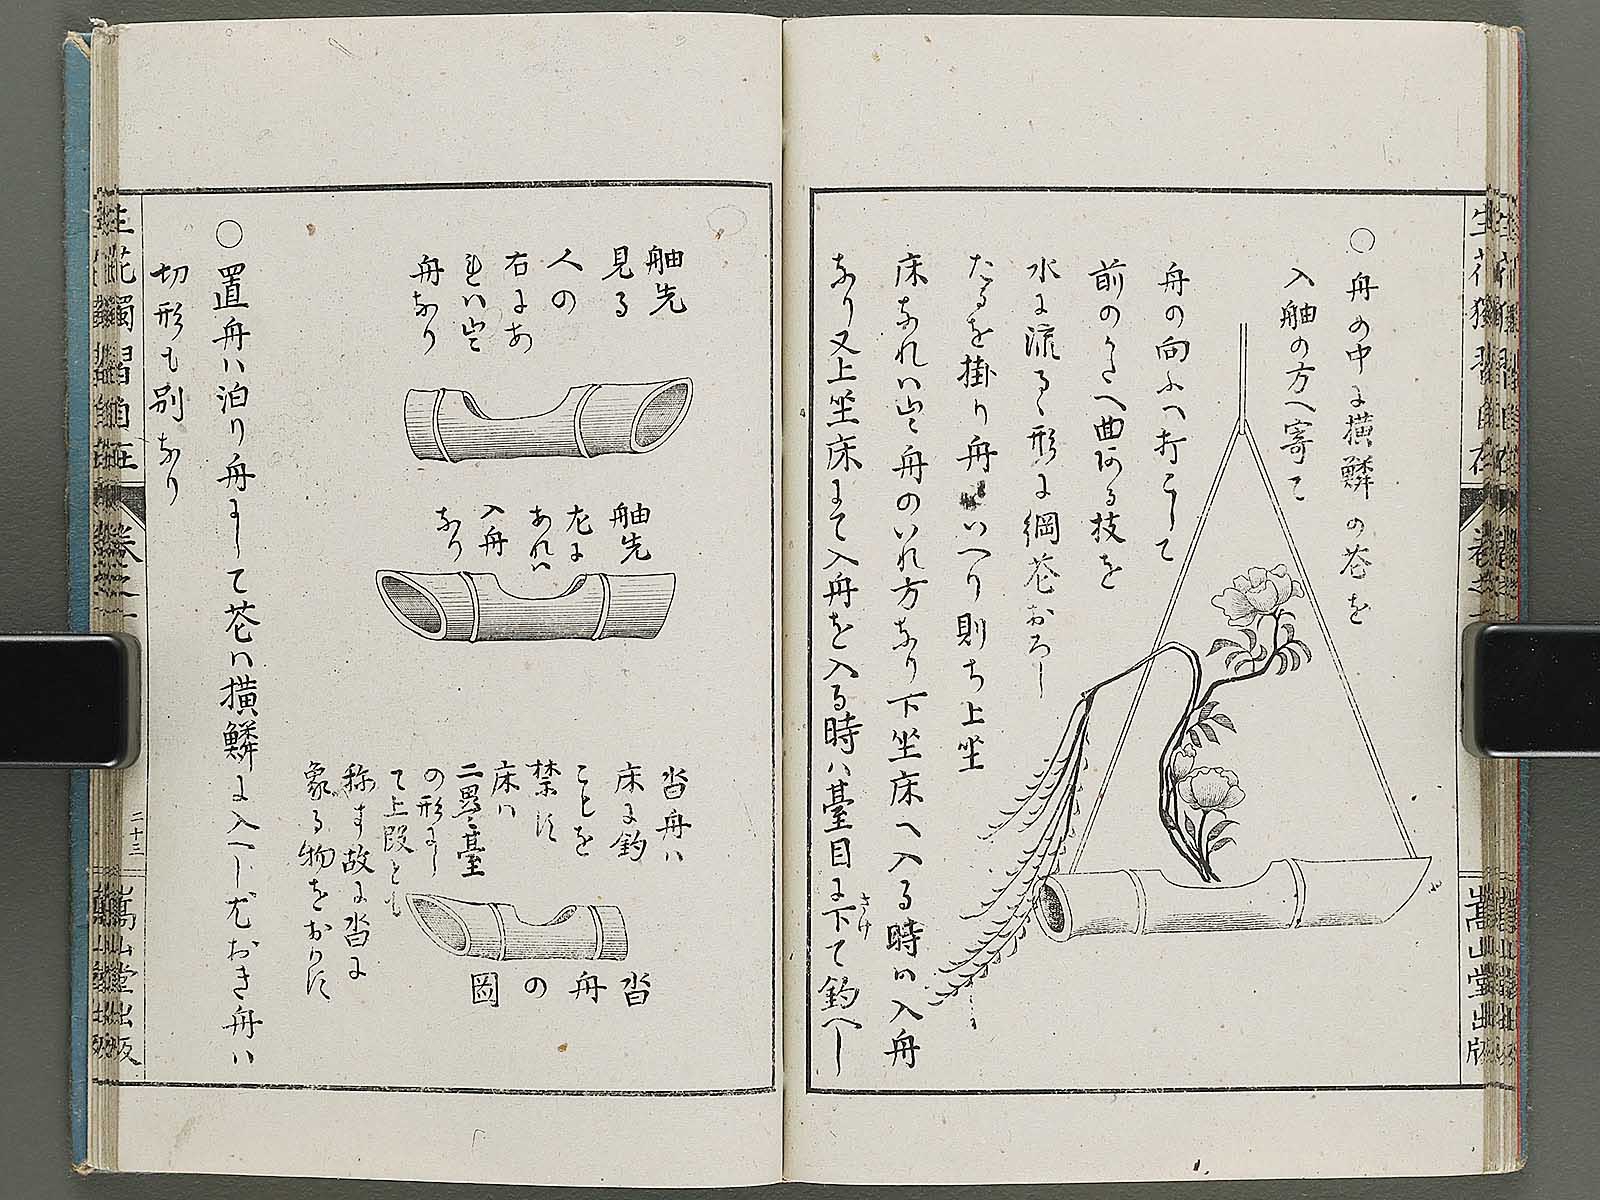 ○舟の中に横鱗の花を
入舳の方へ寄て
舟の向ふへ打こして
前のかたへ曲ある枝を
水に流るゝ形に綱花おろし
たるを掛り舟といへり則ち上坐
床なれハ出舟のいれ方なり下坐床へ入る時ハ入舟
なり又上坐床にて入舟を入る時ハ臺目に下て釣へし
さけ
舳先
見る
人の
右にあ
れハ出
舟なり
舳先
左に
あれハ
入舟
なり
沓舟ハ
床に釣
ことを
禁ず
床ハ
二疊臺
の形にし
て上段とも
称す故に沓に
象る物をかけず
沓舟の圖
○置舟ハ泊り舟にして花ハ横鱗に入へし尤おき舟ハ
切形も別なり
生花獨習自在
卷之一
二十三
嵩山堂出版